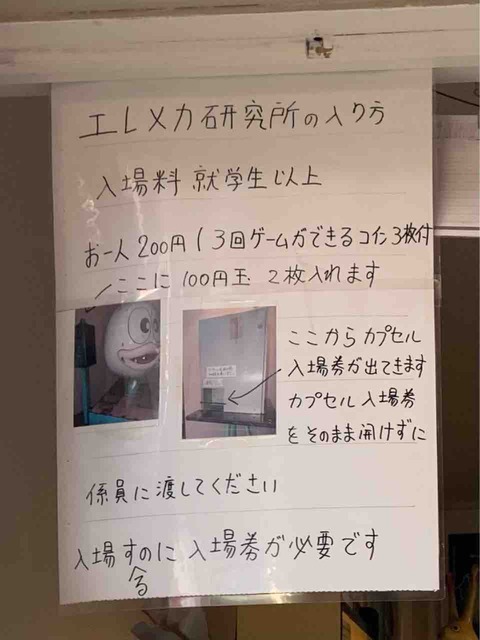 エレメカ研究所の入り方
入場料 就学生以上
お一人200円(3回ゲームができるコイン3枚付
ここに 100円玉 2枚入れます
ここからカプセル
入場券が出てきます
カプセル入場券
をそのまま開けずに
係員に渡してください
入場すのに入場券が必要です
る